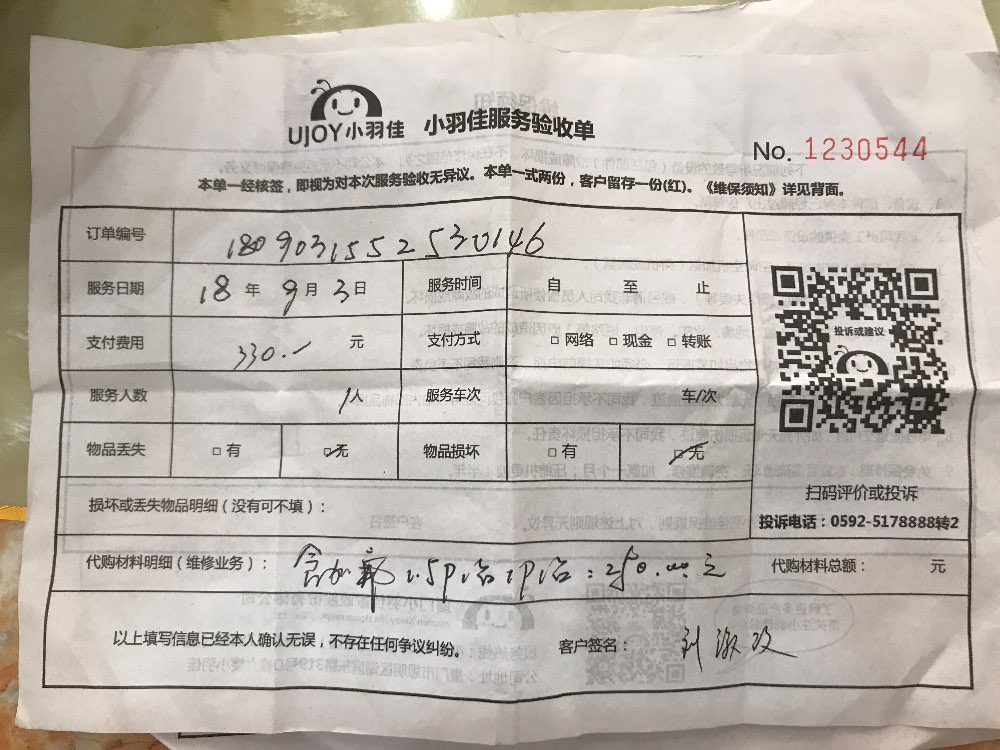 UJOY小羽佳 小羽佳服务验收单
No. 1230544
本单一经核签，即视为对本次服务验收无异议。本单一式两份，客户留存一份(红)。《维保须知》详见背面。
订单编号 1809031552530146
服务日期 18 年 9 月 3 日 服务时间 自 至 止
支付费用 330.- 元 支付方式 □ 网络 □ 现金 □ 转账
服务人数 1人 服务车次 车/次
物品丢失 □ 有 □ 无 物品损坏 □ 有 □ 无
损坏或丢失物品明细（没有可不填）：
代购材料明细（维修业务）： 加氟 1.5P 1P 元 代购材料总额： 元
以上填写信息已经本人确认无误，不存在任何争议纠纷。 客户签名： 刘淑
投诉或建议
扫码评价或投诉
投诉电话：0592-5178888转2